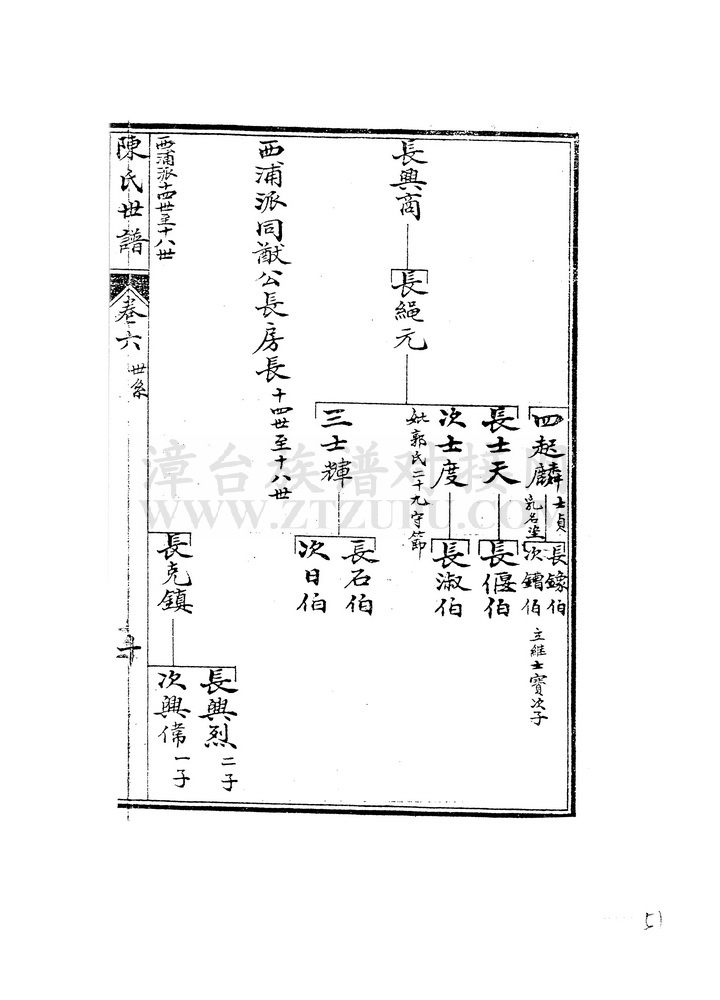 長興商
長繩元
四起麟
士貞
乳名塗
長鎵伯
次鐕伯
立繼士寶次子
長士天
長偃伯
次士度
長淑伯
妣郭氏二十九守節
三士輝
長石伯
次日伯
西浦派同猷公長房長十四世至十八世
長克鎮
長興烈二子
次興偹一子
西浦派十四世至十八世
陳氏世譜
卷六
世系
漳台族谱对接网
WWW.ZTZUPU.COM
51